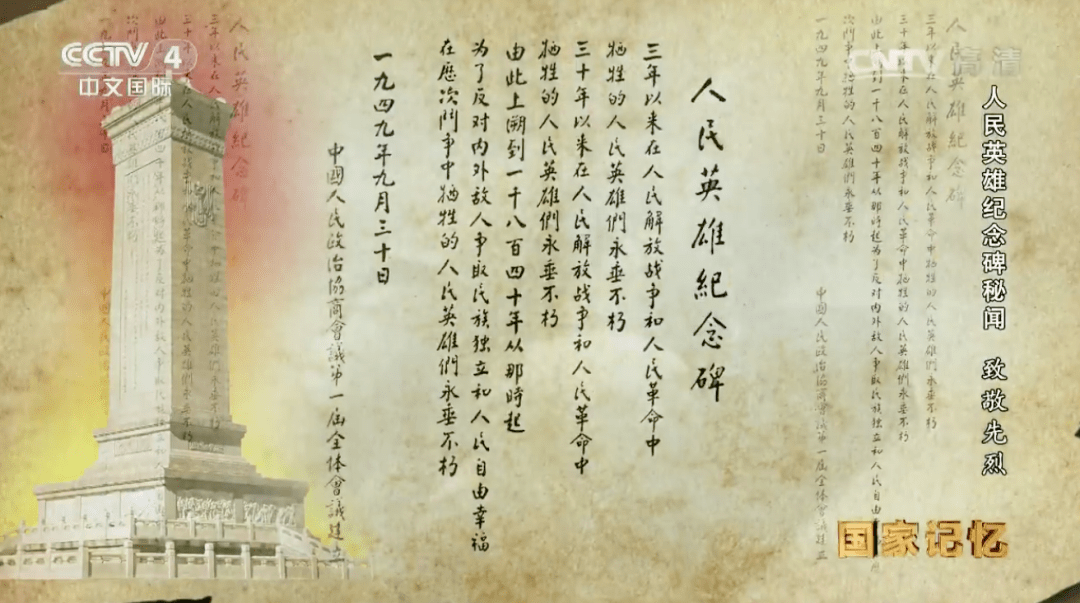 CCTV 4
中文国际
CNTV 高清
人民英雄纪念碑秘闻 致敬先烈
人民英雄紀念碑
三年以来在人民解放战争和人民革命中
牺牲的人民英雄們永垂不朽
三十年以来在人民解放战争和人民革命中
牺牲的人民英雄們永垂不朽
由此上溯到一千八百四十年从那時起
为了反对内外敌人争取民族独立和人民自由幸福
在歷次鬥争中牺牲的人民英雄們永垂不朽
一九四九年九月三十日
中國人民政治協商會議第一屆全体會議建立
国家记忆